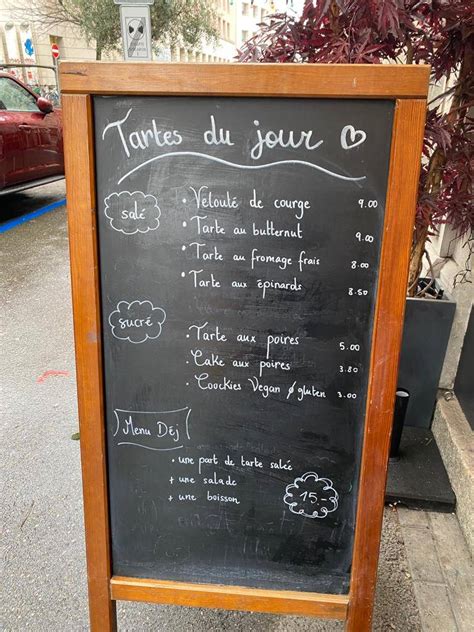 Tartes du jour
salé
• Velouté de courge 9.00
• Tarte au butternut 9.00
• Tarte au fromage frais 8.00
• Tarte aux épinards 8.50
sucré
• Tarte aux poires 5.00
• Cake aux poires 3.80
• Coockies Vegan ø gluten 3.00
Menu Déj
• une part de tarte salée
+ une salade
+ une boisson
15.-